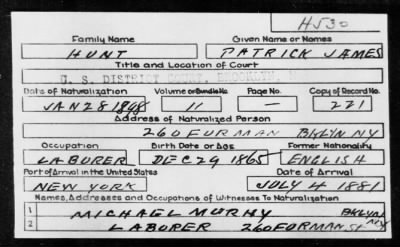 H530
Family Name Given Name or Names
HUNT PATRICK JAMES
Title and Location of Court
U. S. DISTRICT COURT, BROOKLYN,
Date of Naturalization Volume or Bundle No. Page No. Copy of Record No.
JAN 28 1898 11 — 221
Address of Naturalized Person
260 FURMAN BKLYN NY
Occupation Birth Date or Age Former Nationality
LABORER DEC 29 1865 ENGLISH
Port of Arrival in the United States Date of Arrival
NEW YORK JULY 4 1881
Names, Addresses and Occupations of Witnesses To Naturalization
1 MICHAEL MURHY BKLYN NY
2 LABORER 260 FURMAN ST